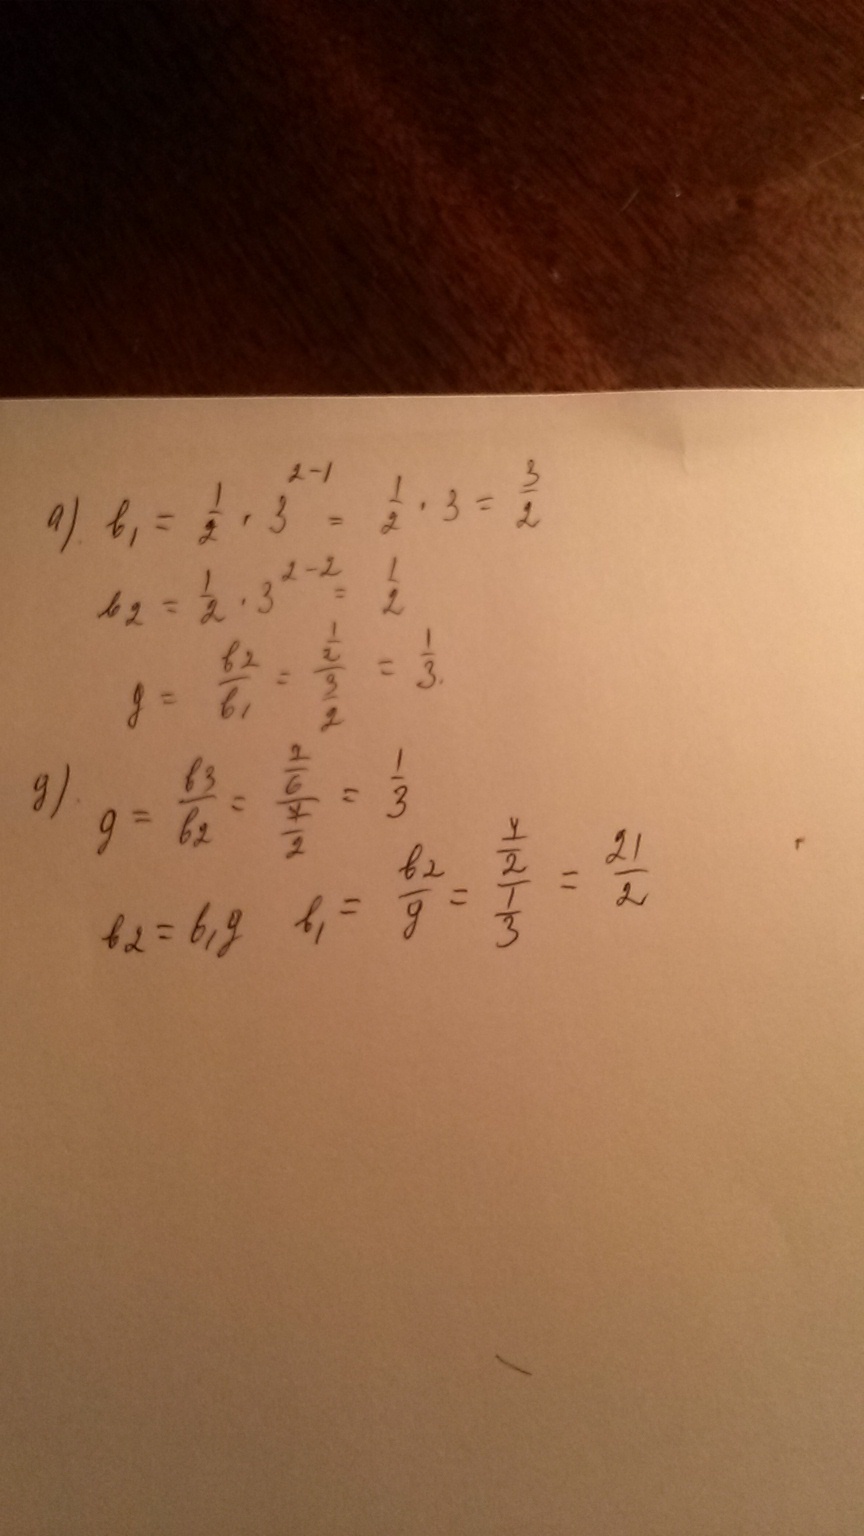 а). b₁ = 1/2 · 3^(2-1) = 1/2 · 3 = 3/2
b2 = 1/2 · 3^(2-2) = 1/2
g = b2/b₁ = (1/2)/(3/2) = 1/3.
g). g = b3/b2 = (7/6)/(7/2) = 1/3
b2 = b₁g b₁ = b2/g = (7/2)/(1/3) = 21/2